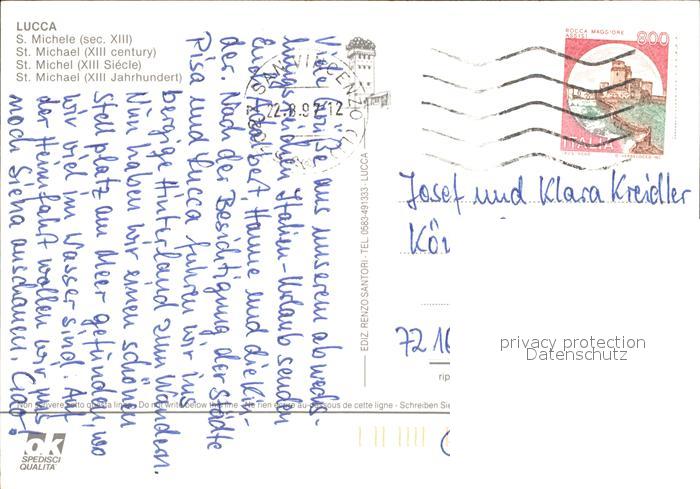 LUCCA
S. Michele (sec. XIII)
St. Michael (XIII century)
St. Michel (XIII Siécle)
St. Michael (XIII Jahrhundert)
Viele Grüße aus unserem abwechs-
lungsreichen Italien-Urlaub senden
Euch Adalbert, Hanne und die Kin-
der. Nach der Besichtigung der Städte
Pisa und Lucca fuhren wir ins
bergige Hinterland zum Wandern.
Nun haben wir einen schönen
Stellplatz am Meer gefunden, wo
wir viel im Wasser sind. Auf
der Heimfahrt wollen wir uns
noch Siena anschauen. Ciao!
SAN VINCENZO
22.8.97-12
EDIZ. RENZO SANTORI - TEL. 0583-491333 - LUCCA
ROCCA MAGGIORE
ASSISI
800
ITALIA
Josef und Klara Kreidler
72 16
privacy protection
Datenschutz
Non scrivere sotto questa linea - Do not write below this line - Ne rien écrire au-dessous de cette ligne - Schreiben Sie
rip
ok
SPEDISCI
QUALITA'